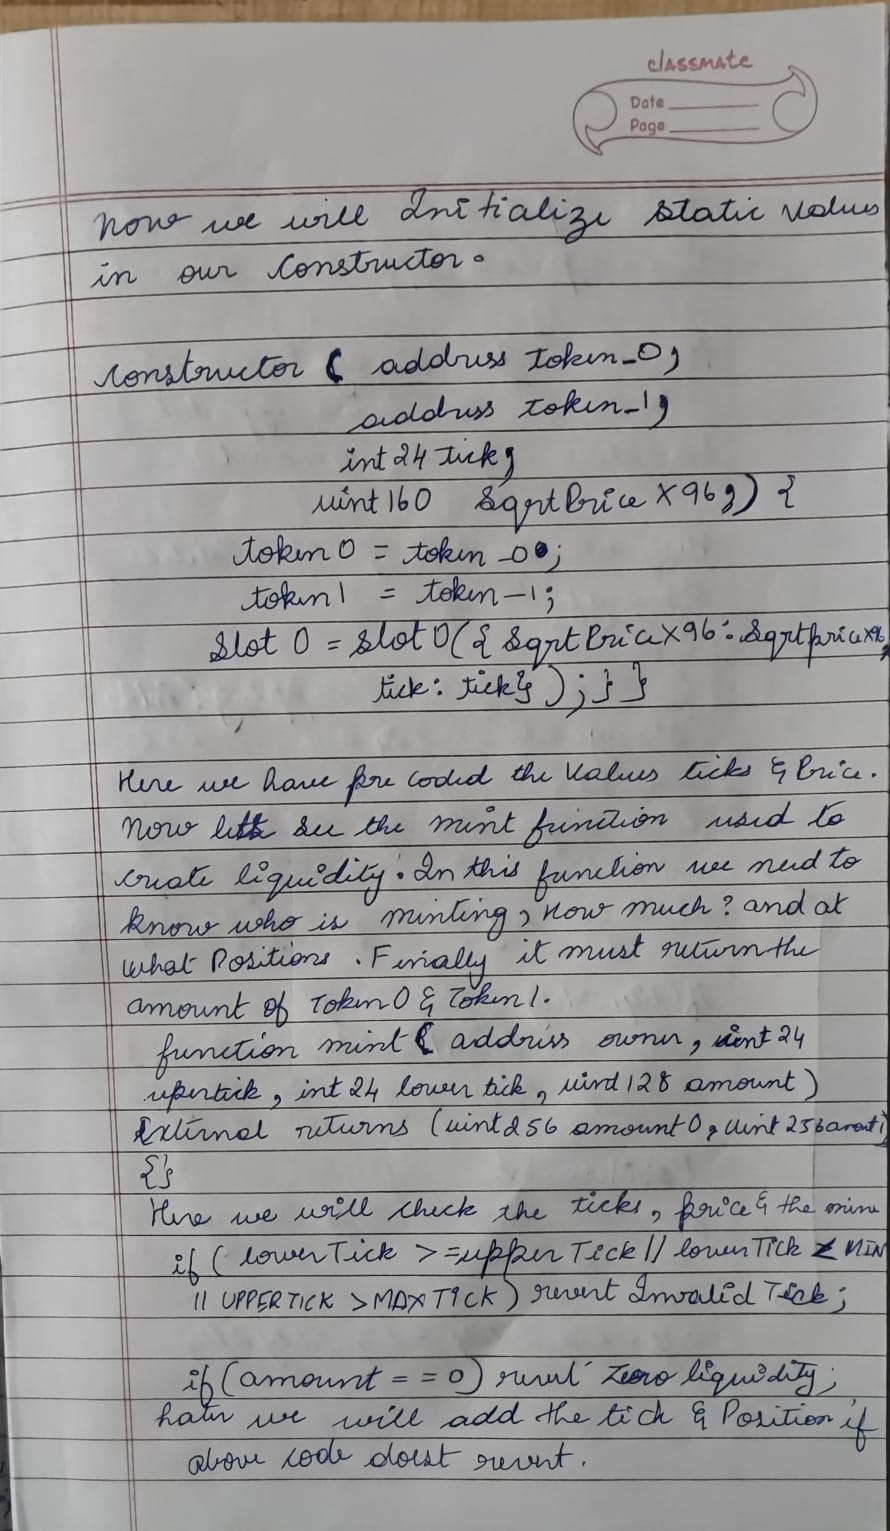 classmate
Date
Page
now we will Initialize static values
in our Constructor.
Constructor ( address token_0,
address token_1,
int 24 tick,
uint 160 SqrtPrice X96,) {
token 0 = token _0;
token 1 = token_1;
Slot 0 = slot 0({ SqrtPriceX96: Sqrtpricex96,
tick: tick}) ; } }
Here we have pre coded the Values ticks & Price.
Now lets see the mint function used to
create liquidity. In this function we need to
know who is minting, How much? and at
what Positions. Finally it must return the
amount of Token 0 & Token 1.
function mint ( address owner, int 24
upertick, int 24 lower tick, uint 128 amount)
External returns (uint 256 amount 0, uint 256
{}
Here we will check the ticks, price & the
if ( lowerTick >= upper Tick || lowerTick < MIN
|| UPPER TICK > MAX TICK) revert Invalid Tick;
if (amount == 0) revert Zero liquidity;
we will add the tick & Position if
above code doest revert.